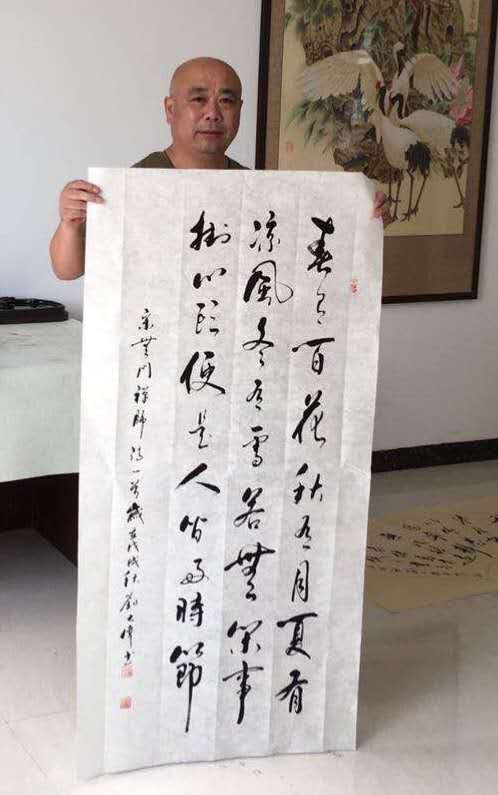 春有百花秋有月夏有
涼風冬有雪若無閑事
掛心頭便是人間好時節
宋無門禪師詩一首歲在戊戌秋劉書